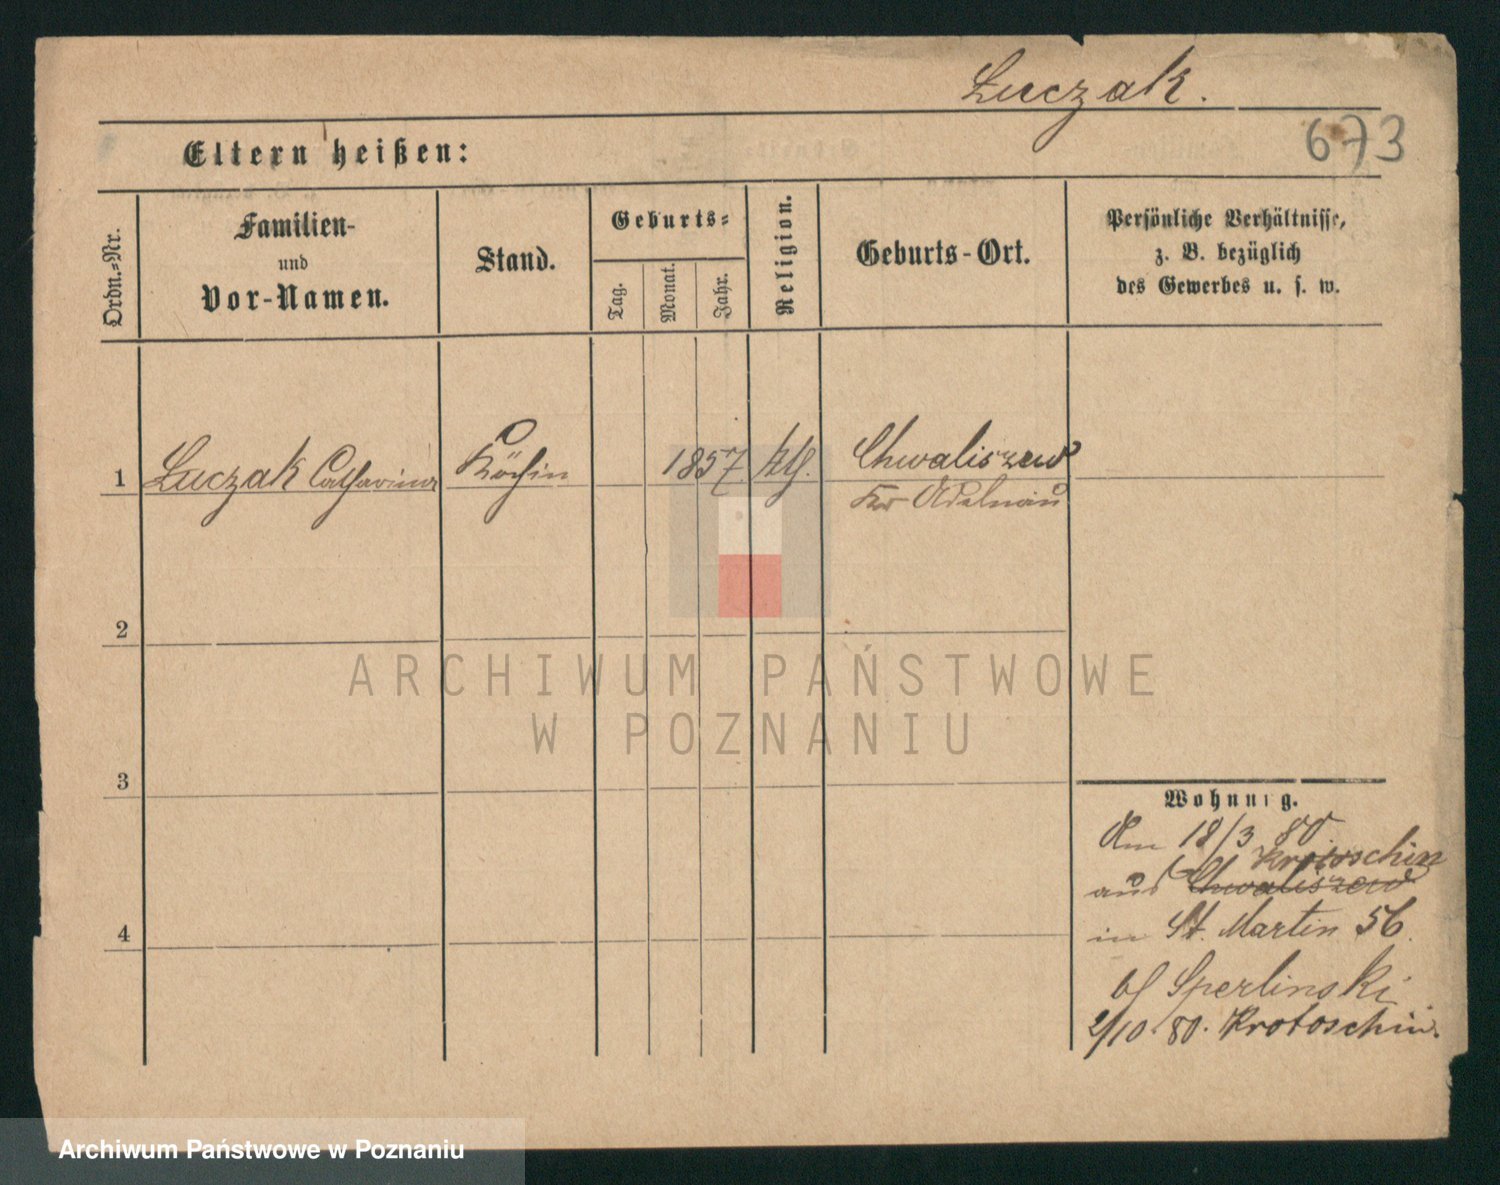 Luczak.
673
Eltern heißen:
Ordn.=Nr.
Familien-
und
Vor-Namen.
Stand.
Geburts=
Tag.
Monat.
Jahr.
Religion.
Geburts-Ort.
Persönliche Verhältnisse,
z. B. bezüglich
des Gewerbes u. s. w.
1 Luczak Catharina Köchin 1857. kth. Chwaliszew
Kr Adelnau
2
ARCHIWUM PAŃSTWOWE
W POZNANIU
3
Wohnung.
Am 18/3 80.
Krotoschin
aus Chwaliszew
in St. Martin 56.
4
b/ Sperlinski
2/10. 80. Krotoschin.
Archiwum Państwowe w Poznaniu